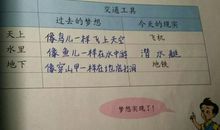 交通工具
过去的梦想 今天的现实
天上 像鸟儿一样飞上天空 飞机
水里 像鱼儿一样在水中游 潜水艇
地下 像穿山甲一样在地底打洞 地铁
梦想实现了!